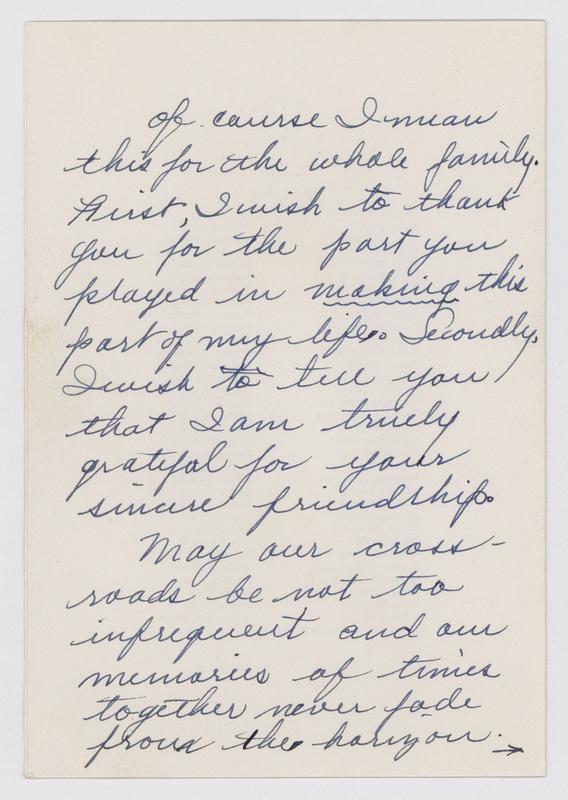 of course I mean
this for the whole family.
First, I wish to thank
you for the part you
prayed in making this
part of my life. Secondly,
I wish to tell you
that I am truely
grateful for your
sincere friendship.
May our cross-
roads be not too
infrequent and our
memories of times
together never fade
from the horizon. →